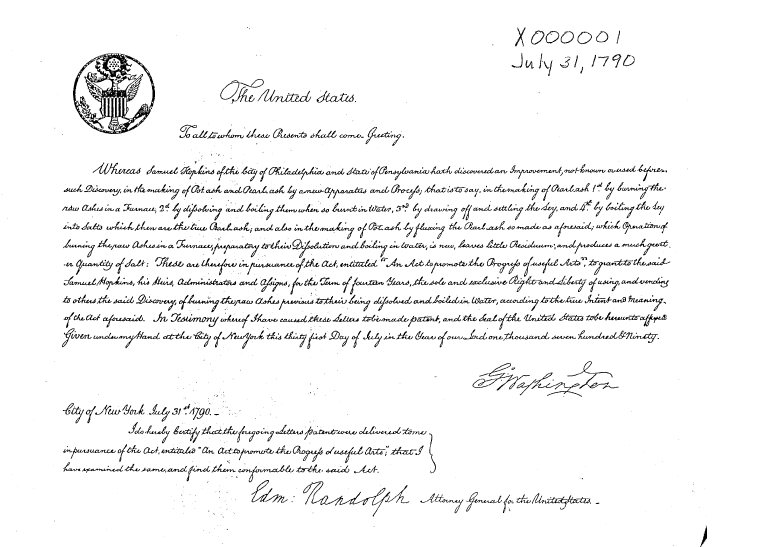 X000001
July 31, 1790
The United States.
To all to whom these Presents shall come. Greeting.
Whereas Samuel Hopkins of the City of Philadelphia and State of Pensylvania hath discovered an Improvement, not known or used before,
such Discovery, in the making of Pot ash and Pearl ash by a new Apparatus and Process; that is to say, in the making of Pearl ash 1st by burning the
raw Ashes in a Furnace, 2d by dissolving and boiling them when so burnt in Water, 3rd by drawing off and settling the Ley, and 4th by boiling the Ley
into Salts which then are the true Pearl ash; and also in the making of Pot ash by fluxing the Pearl ash so made as aforesaid; which Operation of
burning the raw Ashes in a Furnace, preparatory to their Dissolution and boiling in Water, is new, leaves little Residuum; and produces a much great
er Quantity of Salt: These are therefore in pursuance of the Act, entituled "An Act to promote the Progress of useful Arts", to grant to the said
Samuel Hopkins, his Heirs, Administrators and Assigns, for the Term of fourteen Years, the sole and exclusive Right and Liberty of using, and vending
to others the said Discovery, of burning the raw Ashes previous to their being dissolved and boiled in Water, according to the true Intent and Meaning
of the Act aforesaid. In Testimony whereof I have caused these Letters to be made patent, and the Seal of the United States to be hereunto affixed
Given under my Hand at the City of New York this thirty first Day of July in the Year of our Lord one thousand seven hundred & Ninety.
G. Washington
City of New York July 31st 1790. –
I do hereby Certify that the foregoing Letters patent were delivered to me
in pursuance of the Act, entituled "An Act to promote the Progress of useful Arts"; that I
have examined the same, and find them conformable to the said Act.
Edm: Randolph Attorney General for the United States. –